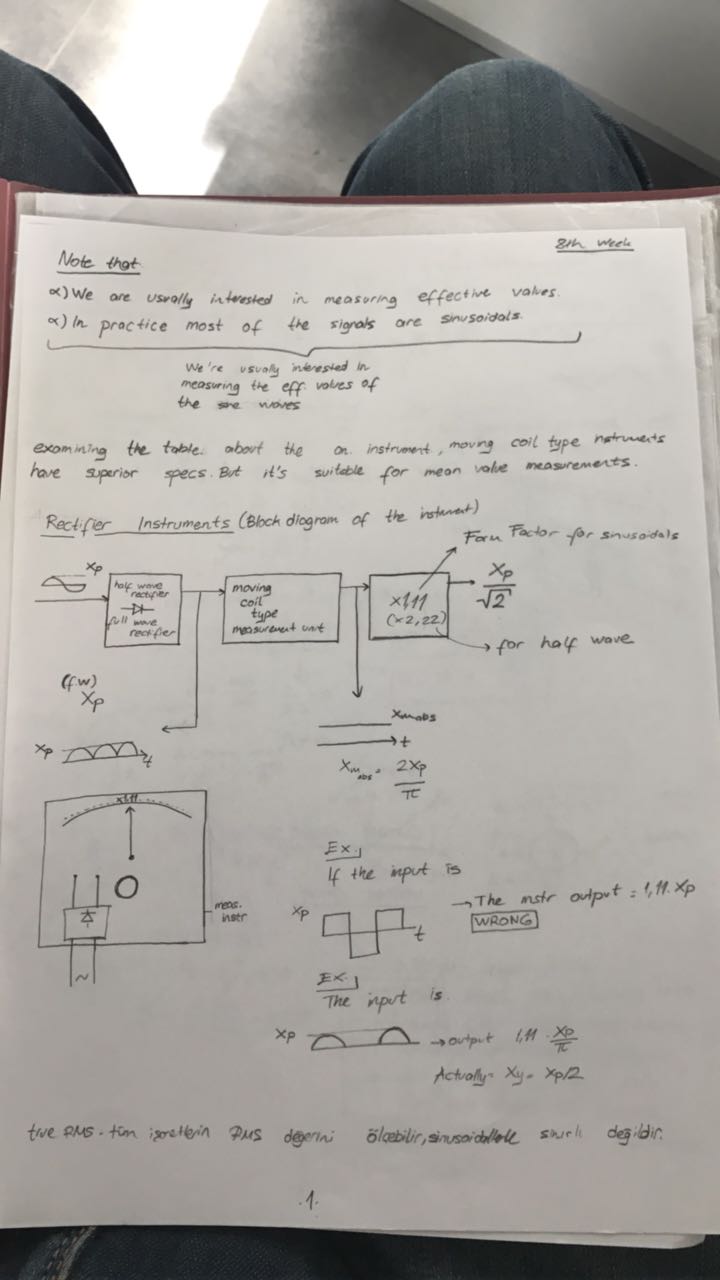 8th Week
Note that
α) We are usually interested in measuring effective values.
α) In practice most of the signals are sinusoidals.
We're usually interested in
measuring the eff. values of
the sine waves
examining the table. about the an. instrument, moving coil type nstruments
have superior specs. But it's suitable for mean value measurements.
Rectifier Instruments (Block diagram of the instument)
Form Factor for sinusoidals
Xp
half wave
rectifier
full wave
rectifier
moving
coil
type
measurement unit
x1,11
(x2,22)
Xp
√2
for half wave
(f.w)
Xp
Xp
t
Xmabs
t
Xmabs = 2Xp
π
x1,11
meas.
instr
~
Ex.
If the input is
Xp
t
→The instr output = 1,11. Xp
WRONG
Ex.
The input is.
Xp
→output 1,11 . Xp
π
Actually= Xy= Xp/2
true RMS. tüm işaretlerin RMS değerini ölçebilir, sinusoidallerle sınırlı değildir.
.1.